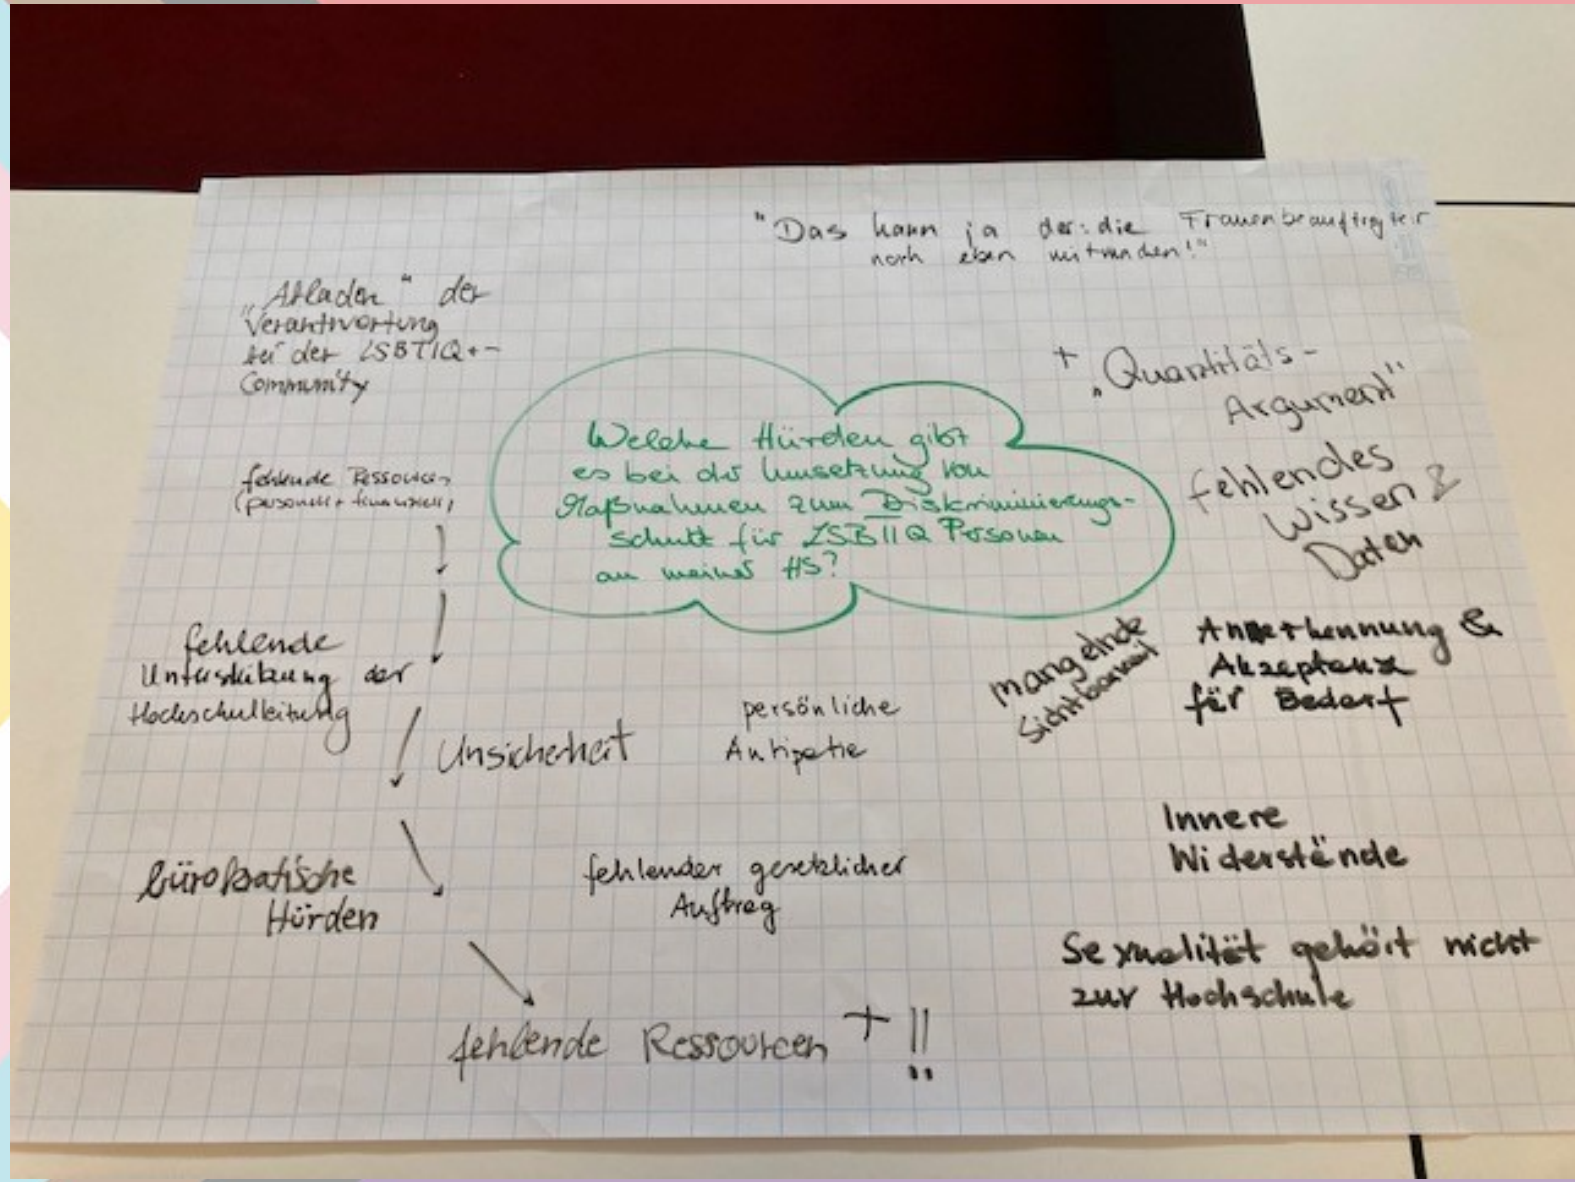 "Das kann ja der:die Frauenbeauftragte:r
noch eben mitmachen!"
„Abladen" der
Verantwortung
bei der LSBTIQ+-
Community
+ „Quantitäts-
Argument"
Welche Hürden gibt
es bei der Umsetzung von
Maßnahmen zum Diskriminierungs-
schutz für LSBTIQ Personen
an meiner HS?
fehlende Ressourcen
(personell + finanziell)
fehlendes
Wissen &
Daten
fehlende
Unterstützung der
Hochschulleitung
mangelnde
Sichtbarkeit
Anerkennung &
Akzeptanz
für Bedarf
Unsicherheit
persönliche
Antipatie
Innere
Widerstände
bürokratische
Hürden
fehlender gesetzlicher
Auftrag
Sexualität gehört nicht
zur Hochschule
fehlende Ressourcen + !!